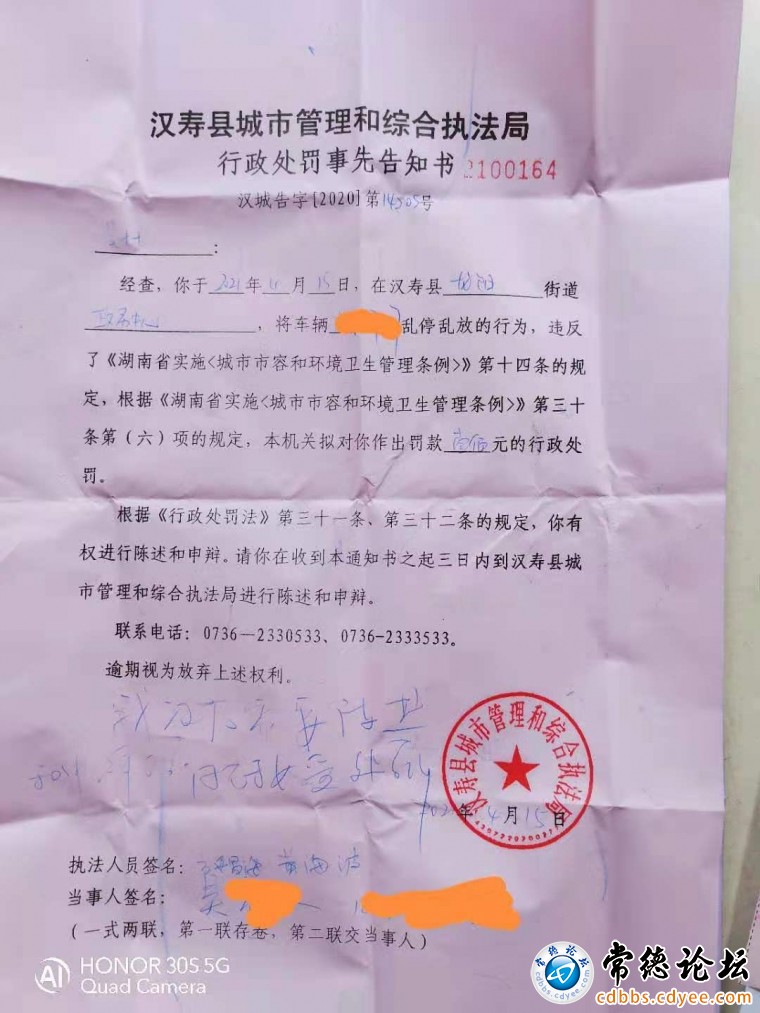 汉寿县城市管理和综合执法局
行政处罚事先告知书 2100164
汉城告字[2020]第14505号
:
经查，你于2021年 月15日，在汉寿县 街道
，将车辆 乱停乱放的行为，违反
了《湖南省实施<城市市容和环境卫生管理条例>》第十四条的规
定，根据《湖南省实施<城市市容和环境卫生管理条例>》第三十
条第（六）项的规定，本机关拟对你作出罚款壹佰元的行政处
罚。
根据《行政处罚法》第三十一条、第三十二条的规定，你有
权进行陈述和申辩。请你在收到本通知书之起三日内到汉寿县城
市管理和综合执法局进行陈述和申辩。
联系电话：0736—2330533、0736-2333533。
逾期视为放弃上述权利。
汉寿县城市管理和综合执法局
年4月15日
执法人员签名：
当事人签名：吴
(一式两联，第一联存卷，第二联交当事人)
AI HONOR 30S 5G
Quad Camera
常德论坛
cdbbs.cdyee.com